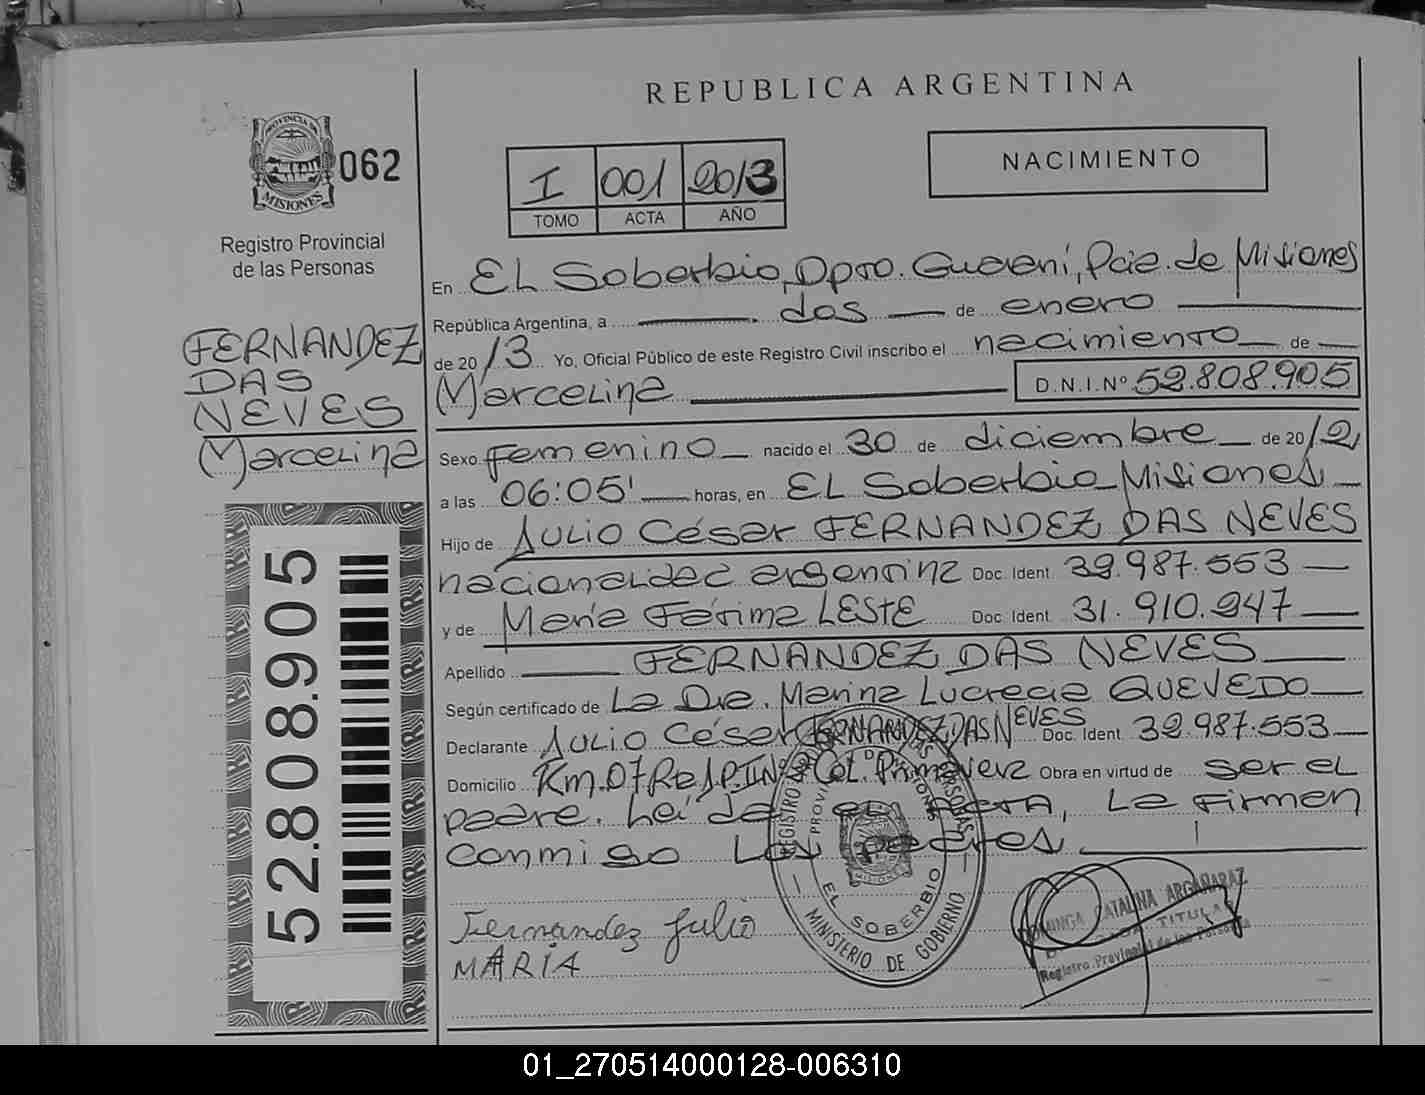 REPUBLICA ARGENTINA
PROVINCIA DE
MISIONES
062
Registro Provincial
de las Personas
I 001 2013
TOMO ACTA AÑO
NACIMIENTO
FERNANDEZ
DAS
NEVES
Marcelina
52.808.905
En EL Soberbio, Dpto. Guaraní, Pcia. de Misiones
República Argentina, a dos de enero
de 2013 Yo, Oficial Público de este Registro Civil inscribo el nacimiento de
Marcelina D.N.I.Nº 52.808.905
Sexo femenino nacido el 30 de diciembre de 2012
a las 06:05' horas, en EL Soberbio Misiones
Hijo de Julio César FERNANDEZ DAS NEVES
nacionalidad argentina Doc. Ident. 39.987.553
y de María Fátima LESTE Doc. Ident. 31.910.247
Apellido FERNANDEZ DAS NEVES
Según certificado de La Dra. Marina Lucrecia QUEVEDO
Declarante Julio César FERNANDEZ DAS NEVES Doc. Ident. 39.987.553
Domicilio Km.07 Col. Primavera Obra en virtud de ser el
padre. Leída el ACTA, La firman
conmigo Los padres
Fernandez Julio
MARÍA
EL SOBERBIO
MINISTERIO DE GOBIERNO
CATALINA ARGAÑARAZ
TITULAR
Registro Provincial de las Personas
01_270514000128-006310